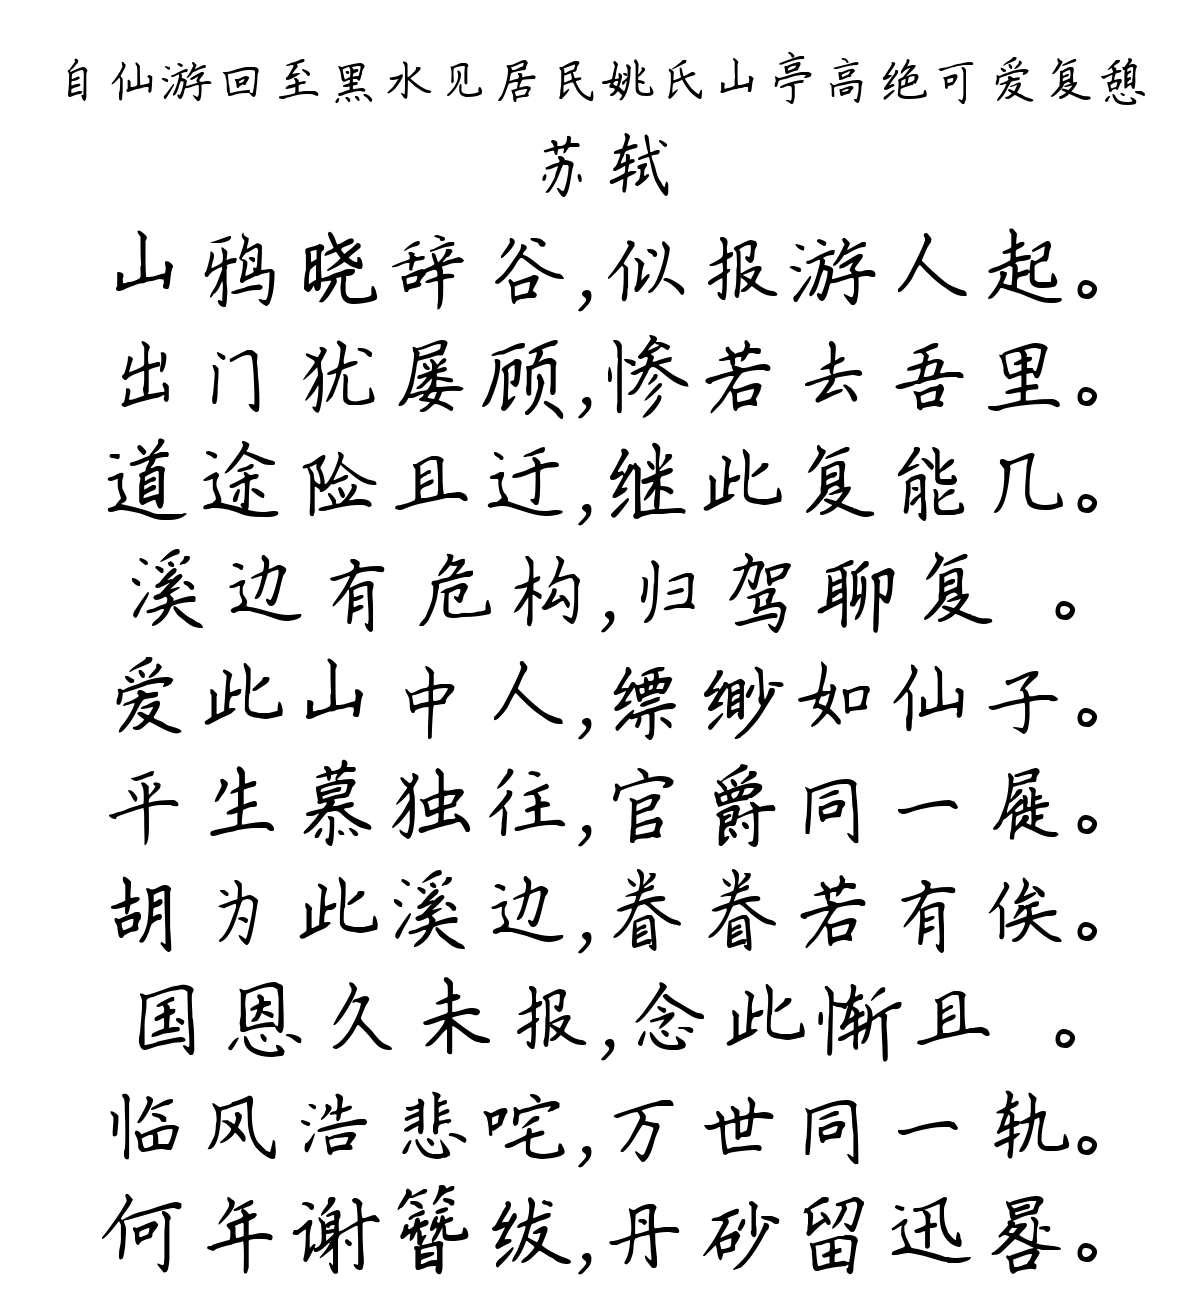 自仙游回至黑水见居民姚氏山亭高绝可爱复憩
苏轼
山鸦晓辞谷,似报游人起。
出门犹屡顾,惨若去吾里。
道途险且迂,继此复能几。
溪边有危构,归驾聊复 。
爱此山中人,缥缈如仙子。
平生慕独往,官爵同一屣。
胡为此溪边,眷眷若有俟。
国恩久未报,念此惭且 。
临风浩悲咤,万世同一轨。
何年谢簪绂,丹砂留迅晷。